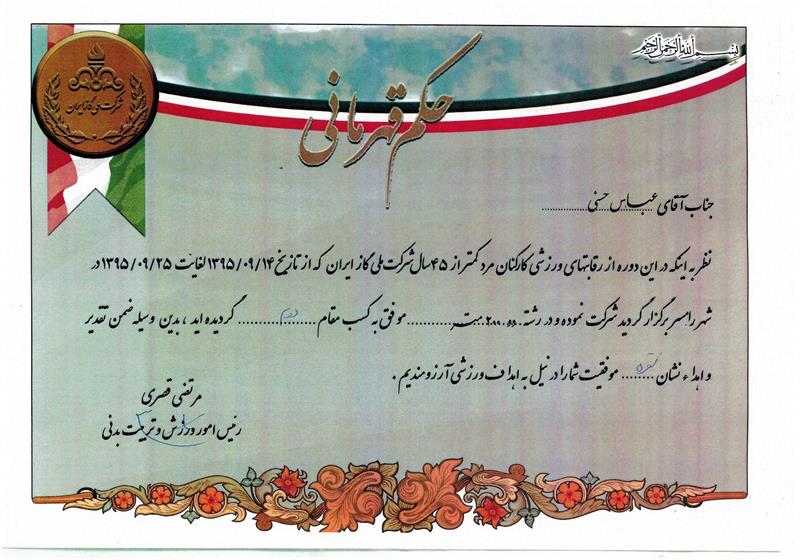 بسم الله الرحمن الرحیم
شرکت ملی گاز ایران
حکم قهرمانی
جناب آقای عباس حسنی
نظر به اینکه در این دوره از رقابتهای ورزشی کارکنان مرد کمتر از ۴۵ سال شرکت ملی گاز ایران که از تاریخ ۱۳۹۵/۰۹/۱۴ لغایت ۱۳۹۵/۰۹/۲۵ در
شهر رامسر برگزار گردید شرکت نموده و در رشته دو ۲۰۰ متر موفق به کسب مقام دوم گردیده اید ، بدین وسیله ضمن تقدیر
و اهداء نشان نقره موفقیت شما را در نیل به اهداف ورزشی آرزومندیم .
مرتضی قصری
رئیس امور ورزش و تربیت بدنی